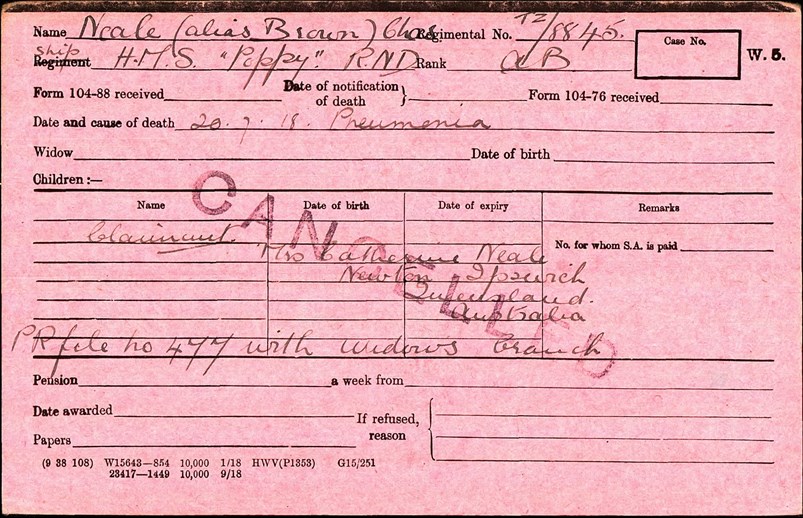 Name Neale (alias Brown) Chas. Regimental No. TZ/8845. Case No. W. 5.
ship
Regiment H.M.S. "Poppy". RND Rank AB
Form 104-88 received Date of notification of death } Form 104-76 received
Date and cause of death 20. 7. 18. Pneumonia
Widow Date of birth
Children :—
Name Date of birth Date of expiry Remarks
CANCELLED
Claimant. Mrs Catherine Neale No. for whom S.A. is paid
Newton Ipswich
Queensland.
Australia
PR file no 477 with widows branch
Pension a week from
Date awarded If refused, reason {
Papers
(9 38 108) W15643—854 10,000 1/18 HWV(P1353) G15/251
23417—1449 10,000 9/18